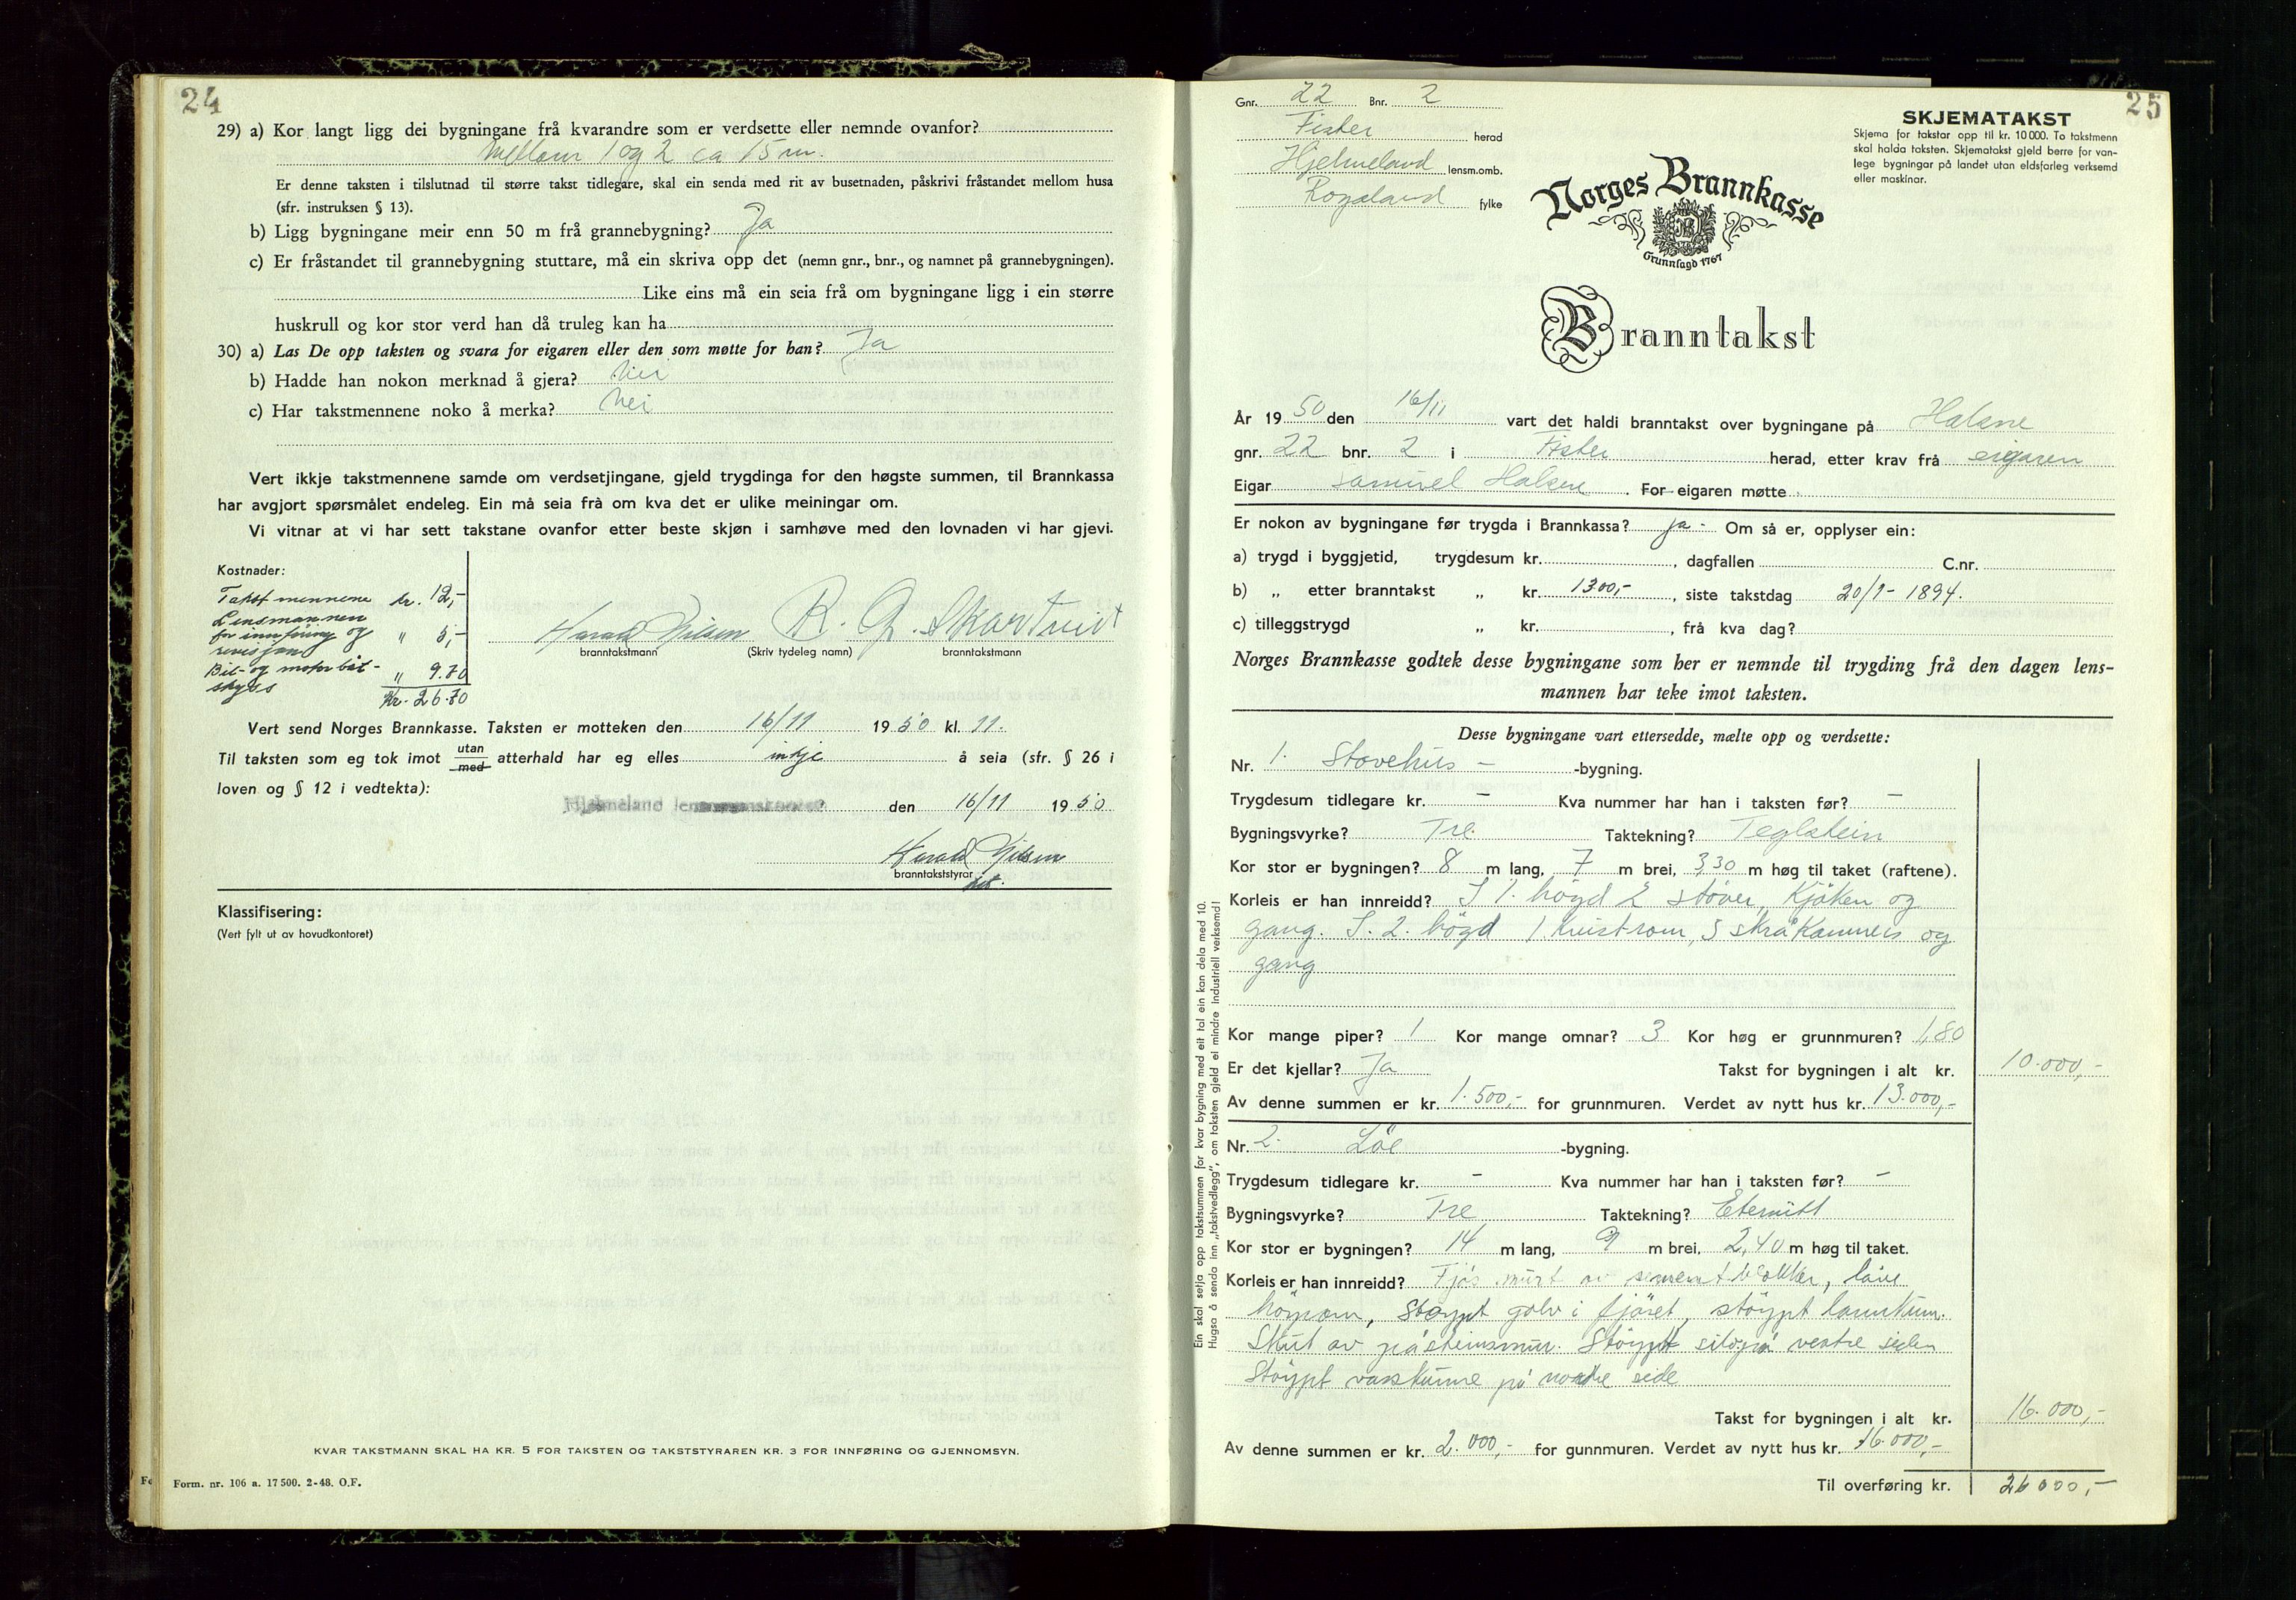 24
29) a) Kor langt ligg dei bygningane frå kvarandre som er verdsette eller nemnde ovanfor?
Mellom 1 og 2 ca 15 m.
Er denne taksten i tilslutnad til større takst tidlegare, skal ein senda med rit av busetnaden, påskrivi fråstandet mellom husa
(sfr. instruksen § 13).
b) Ligg bygningane meir enn 50 m frå grannebygning? Ja
c) Er fråstandet til grannebygning stuttare, må ein skriva opp det (nemn gnr., bnr., og namnet på grannebygningen).
Like eins må ein seia frå om bygningane ligg i ein større
huskrull og kor stor verd han då truleg kan ha
30) a) Las De opp taksten og svara for eigaren eller den som møtte for han? Ja
b) Hadde han nokon merknad å gjera? Nei
c) Har takstmennene noko å merka? Nei
Vert ikkje takstmennene samde om verdsetjingane, gjeld trygdinga for den høgste summen, til Brannkassa
har avgjort spørsmålet endeleg. Ein må seia frå om kva det er ulike meiningar om.
Vi vitnar at vi har sett takstane ovanfor etter beste skjøn i samhøve med den lovnaden vi har gjevi.
Kostnader:
Takstmennene kr. 12,-
Lensmannen
for innføring og " 5,-
revisjon
Bil- og motorbåt-
skyss " 9.70
Kr. 26.70
Harald Nilsen R. G. Skartveit
branntakstmann (Skriv tydeleg namn) branntakstmann
Vert send Norges Brannkasse. Taksten er motteken den 16/11 1950 kl. 11.
Til taksten som eg tok imot utan/med atterhald har eg elles inkje å seia (sfr. § 26 i
loven og § 12 i vedtekta):
Hjelmeland lensmannskontor den 16/11 1950
Harald Nilsen
branntakststyrar
Klassifisering:
(Vert fylt ut av hovudkontoret)
KVAR TAKSTMANN SKAL HA KR. 5 FOR TAKSTEN OG TAKSTSTYRAREN KR. 3 FOR INNFØRING OG GJENNOMSYN.
Form. nr. 106 a. 17 500. 2-48. O.F.
25
Gnr. 22 Bnr. 2
Fister herad
Hjelmeland lensm.omb.
Rogaland fylke
SKJEMATAKST
Skjema for takstar opp til kr. 10 000. To takstmenn
skal halda taksten. Skjematakst gjeld berre for van-
lege bygningar på landet utan eldsfarleg verksemd
eller maskinar.
Norges Brannkasse
Grunnlagd 1767
Branntakst
År 1950 den 16/11 vart det haldi branntakst over bygningane på Halsne
gnr. 22 bnr. 2 i Fister herad, etter krav frå eigaren
Eigar Samuel Halsne. For eigaren møtte
Er nokon av bygningane før trygda i Brannkassa? ja - Om så er, opplyser ein:
a) trygd i byggjetid, trygdesum kr. , dagfallen C.nr.
b) „ etter branntakst „ kr. 1300,- , siste takstdag 20/9-1894.
c) tilleggstrygd „ kr. , frå kva dag?
Norges Brannkasse godtek desse bygningane som her er nemnde til trygding frå den dagen lens-
mannen har teke imot taksten.
Desse bygningane vart ettersedde, mælte opp og verdsette:
Nr. 1. Stovehus - -bygning.
Trygdesum tidlegare kr. - Kva nummer har han i taksten før? -
Bygningsvyrke? Tre. Taktekning? Teglstein
Kor stor er bygningen? 8 m lang, 7 m brei, 3,30 m høg til taket (raftene).
Korleis er han innreidd? I 1. högd 2 stover, Kjöken og
gang. I. 2. högd 1 kvistrom, 3 skråkammers og
gang
Kor mange piper? 1 Kor mange omnar? 3 Kor høg er grunnmuren? 1,80
Er det kjellar? Ja Takst for bygningen i alt kr. 10.000,-
Av denne summen er kr. 1.500,- for grunnmuren. Verdet av nytt hus kr. 13.000,-
Nr. 2. Löe -bygning.
Trygdesum tidlegare kr. - Kva nummer har han i taksten før? -
Bygningsvyrke? Tre Taktekning? Eternitt
Kor stor er bygningen? 14 m lang, 9 m brei, 2,40 m høg til taket.
Korleis er han innreidd? Fjös murt av sementblokker, låve
höyrom, Stöypt golv i fjöset, stöypt
Skut av gråsteinsmur. Stöypt silo på vestre siden
Stöypt på nordre side
Takst for bygningen i alt kr. 16.000,-
Av denne summen er kr. 2.000,- for gunnmuren. Verdet av nytt hus kr. 16.000,-
Til overføring kr. 26000,-
Ein skal setja opp takstsummen for kvar bygning med eit tal ein kan dela med 10.
Hugsa å senda inn „takstvedlegg", om taksten gjeld ei mindre industriell verksemd!